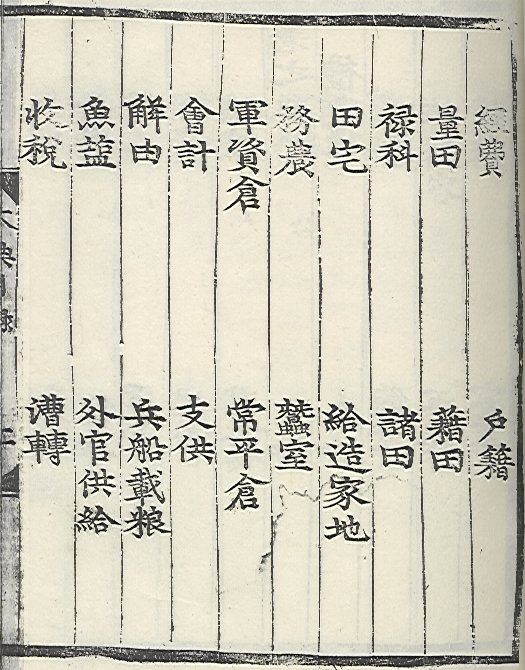 經費 戶籍
量田 藉田
禄科 諸田
田宅 給造家地
務農 蠶室
軍資倉 常平倉
會計 支供
觧由 兵船載粮
魚塩 外官供給
收稅 漕轉